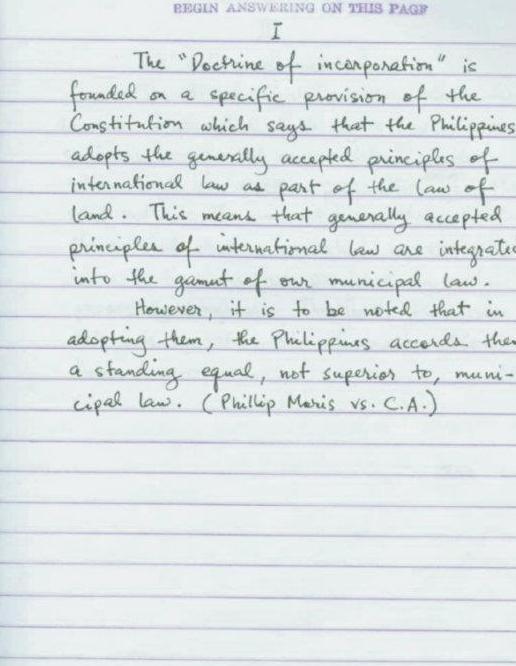 BEGIN ANSWERING ON THIS PAGE
I
The "Doctrine of incorporation" is
founded on a specific provision of the
Constitution which says that the Philippines
adopts the generally accepted principles of
international law as part of the law of
land. This means that generally accepted
principles of international law are integrate
into the gamut of our municipal law.
However, it is to be noted that in
adopting them, the Philippines accords the
a standing equal, not superior to, muni-
cipal law. (Phillip Moris vs. C.A.)